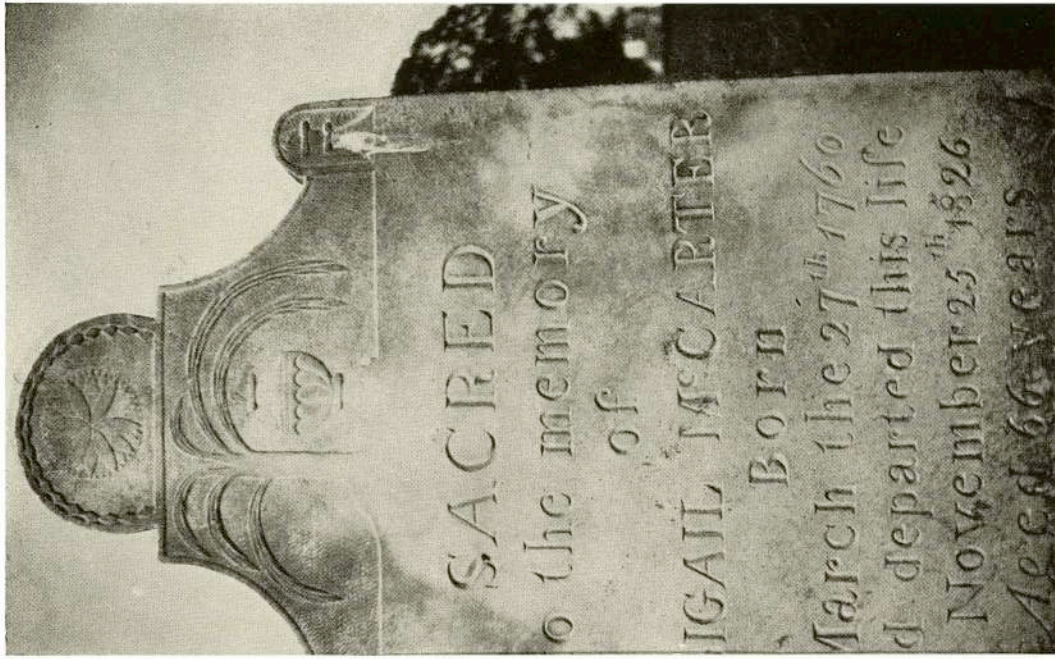 SACRED
o the memory
of
IGAIL McCARTER
Born
March the 27th 1760
d departed this life
November 25th 1826
Aged 66 years